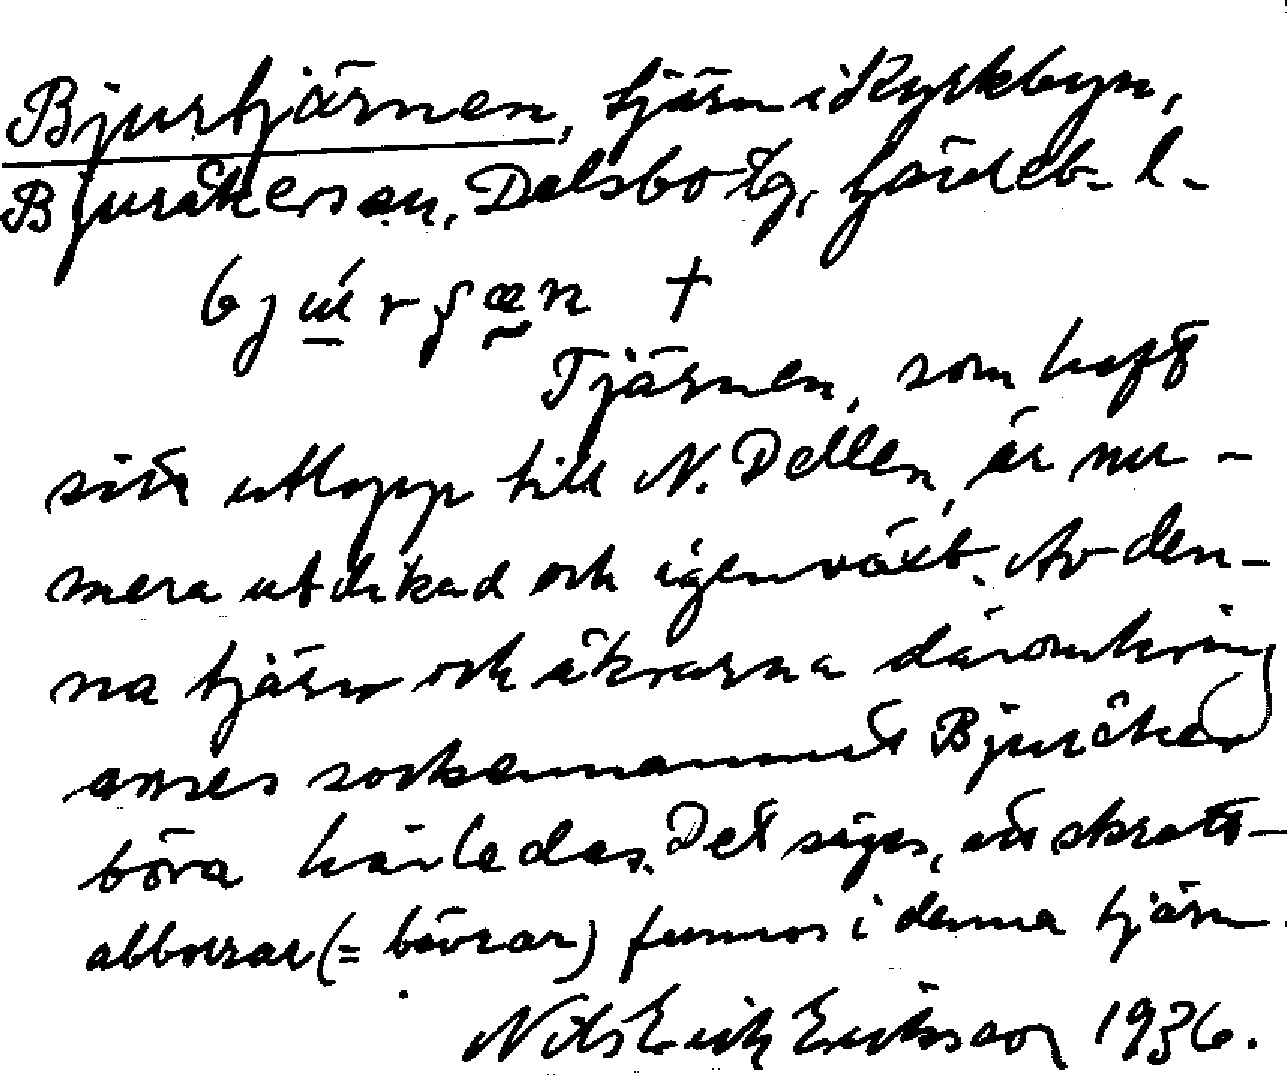 Bjurtjärnen, tjärn i Kyrkbyn,
Bjuråker sn, Delsbo tg, Gävleb. l.
Tjärnen, som haft
sitt utlopp till N. Dellen, är nu-
mera utdikad och igenväxt. Av den-
na tjärn och åkrarna däromkring
anses sockennamnet Bjuråker
böra härledas. Det säges, att skratt-
abborrar (= bävrar) funnos i denna tjärn.
Nils Erik Eriksson 1936.